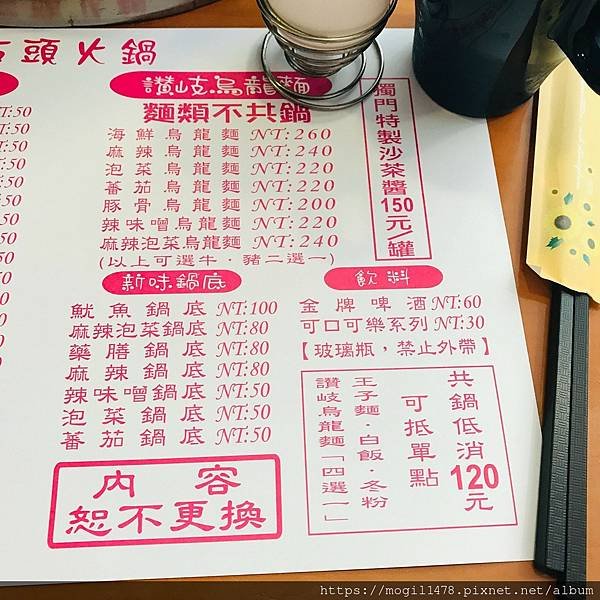 石頭火鍋
NT:50
讚岐烏龍麵
麵類不共鍋
海鮮烏龍麵 NT:260
麻辣烏龍麵 NT:240
泡菜烏龍麵 NT:220
蕃茄烏龍麵 NT:220
豚骨烏龍麵 NT:200
辣味噌烏龍麵 NT:220
麻辣泡菜烏龍麵 NT:240
(以上可選牛．豬二選一)
獨門特製沙茶醬150元/罐
新味鍋底
魷魚鍋底 NT:100
麻辣泡菜鍋底 NT:80
藥膳鍋底 NT:80
麻辣鍋底 NT:80
辣味噌鍋底 NT:50
泡菜鍋底 NT:50
蕃茄鍋底 NT:50
內容
恕不更換
飲料
金牌啤酒 NT:60
可口可樂系列 NT:30
【玻璃瓶，禁止外帶】
共鍋低消120元
可抵單點
王子麵．白飯．冬粉
讚岐烏龍麵「四選一」
https://mogil1478.pixnet.net/album